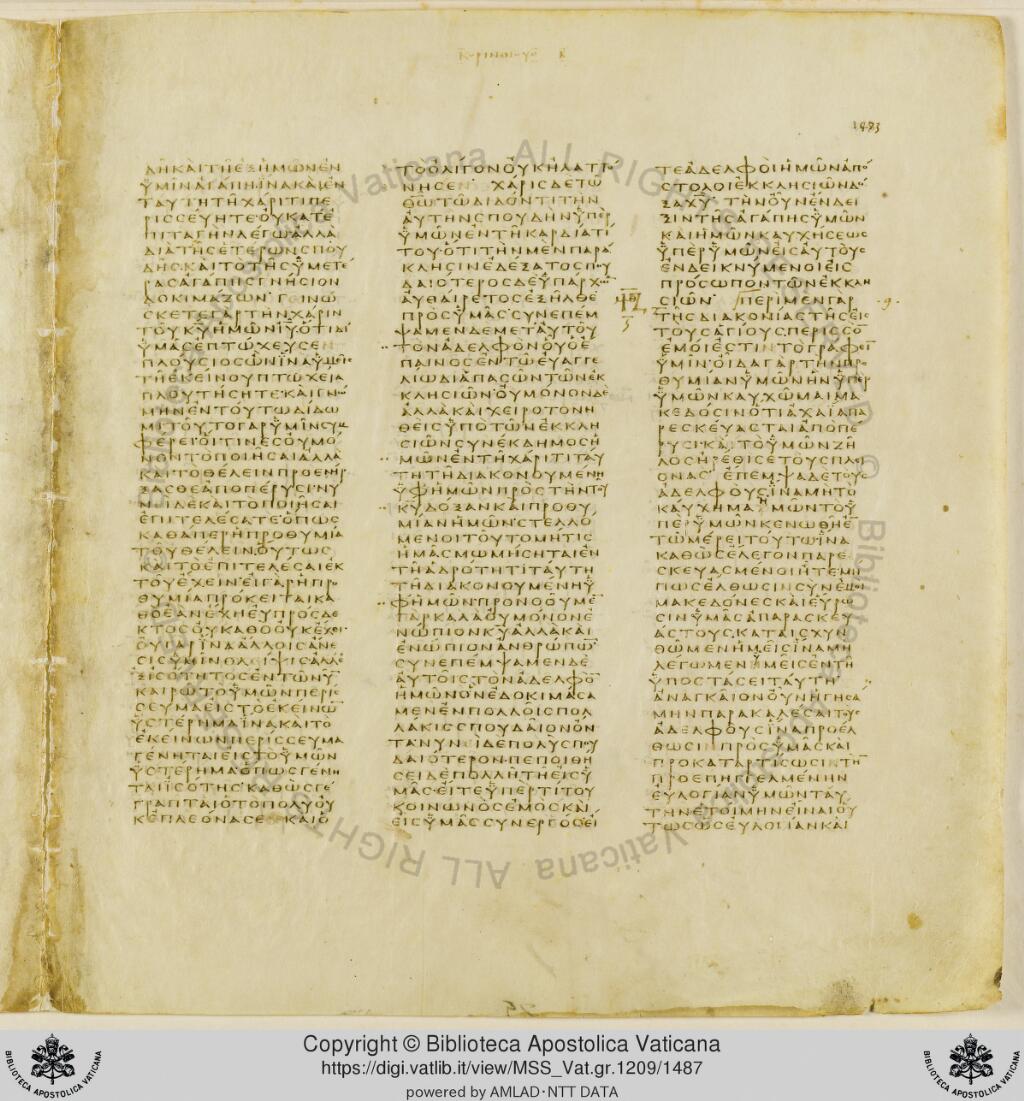 Κορινθιουσ Β
1473
ΔΗΚΑΙΤΗΕΞΗΜΩΝΕΝ
ΥΜΙΝΑΓΑΠΗΙΝΑΚΑΙΕΝ
ΤΑΥΤΗΤΗΧΑΡΙΤΙΠΕ
ΡΙϹϹΕΥΗΤΕΟΥΚΑΤΕ
ΠΙΤΑΓΗΝΛΕΓΩΑΛΛΑ
ΔΙΑΤΗϹΕΤΕΡΩΝϹΠΟΥ
ΔΗϹΚΑΙΤΟΤΗϹΥΜΕΤΕ
ΡΑϹΑΓΑΠΗϹΓΝΗϹΙΟΝ
ΔΟΚΙΜΑΖΩΝ ΓΕΙΝΩ
ϹΚΕΤΕΓΑΡΤΗΝΧΑΡΙΝ
ΤΟΥΚΥΗΜΩΝΙΥΟΤΙΔΙ
ΥΜΑϹΕΠΤΩΧΕΥϹΕΝ
ΠΛΟΥϹΙΟϹΩΝΙΝΑΥΜΕΙϹ
ΤΗΕΚΕΙΝΟΥΠΤΩΧΕΙΑ
ΠΛΟΥΤΗϹΗΤΕΚΑΙΓΝΩ
ΜΗΝΕΝΤΟΥΤΩΔΙΔΩ
ΜΙΤΟΥΤΟΓΑΡΥΜΙΝϹΥΜ
ΦΕΡΕΙΟΙΤΙΝΕϹΟΥΜΟ
ΝΟΝΤΟΠΟΙΗϹΑΙΑΛΛΑ
ΚΑΙΤΟΘΕΛΕΙΝΠΡΟΕΝΗΡ
ΞΑϹΘΕΑΠΟΠΕΡΥϹΙΝΥ
ΝΙΔΕΚΑΙΤΟΠΟΙΗϹΑΙ
ΕΠΙΤΕΛΕϹΑΤΕΟΠΩϹ
ΚΑΘΑΠΕΡΗΠΡΟΘΥΜΙΑ
ΤΟΥΘΕΛΕΙΝΟΥΤΩϹ
ΚΑΙΤΟΕΠΙΤΕΛΕϹΑΙΕΚ
ΤΟΥΕΧΕΙΝΕΙΓΑΡΗΠΡΟ
ΘΥΜΙΑΠΡΟΚΕΙΤΑΙΚΑ
ΘΟΕΑΝΕΧΗΕΥΠΡΟϹΔΕ
ΚΤΟϹΟΥΚΑΘΟΟΥΚΕΧΕΙ
ΟΥΓΑΡΙΝΑΑΛΛΟΙϹΑΝΕ
ϹΙϹΥΜΙΝΘΛΕΙΨΙϹΑΛΛΕ
ΞΙϹΟΤΗΤΟϹΕΝΤΩΝΥΝ
ΚΑΙΡΩΤΟΥΜΩΝΠΕΡΙϹ
ϹΕΥΜΑΕΙϹΤΟΕΚΕΙΝΩΝ
ΥϹΤΕΡΗΜΑΙΝΑΚΑΙΤΟ
ΕΚΕΙΝΩΝΠΕΡΙϹϹΕΥΜΑ
ΓΕΝΗΤΑΙΕΙϹΤΟΥΜΩΝ
ΥϹΤΕΡΗΜΑΟΠΩϹΓΕΝΗ
ΤΑΙΙϹΟΤΗϹΚΑΘΩϹΓΕ
ΓΡΑΠΤΑΙΟΤΟΠΟΛΥΟΥ
ΚΕΠΛΕΟΝΑϹΕΝΚΑΙΟ
ΤΟΟΛΙΓΟΝΟΥΚΗΛΑΤΤΟ
ΝΗϹΕΝ ΧΑΡΙϹΔΕΤΩ
ΘΩΤΩΔΙΔΟΝΤΙΤΗΝ
ΑΥΤΗΝϹΠΟΥΔΗΝΥΠΕΡ
ΥΜΩΝΕΝΤΗΚΑΡΔΙΑΤΙ
ΤΟΥΟΤΙΤΗΝΜΕΝΠΑΡΑ
ΚΛΗϹΙΝΕΔΕΞΑΤΟϹΠΟΥ
ΔΑΙΟΤΕΡΟϹΔΕΥΠΑΡΧΩ
ΑΥΘΑΙΡΕΤΟϹΕΞΗΛΘΕ
ΠΡΟϹΥΜΑϹϹΥΝΕΠΕΜ
ΨΑΜΕΝΔΕΜΕΤΑΥΤΟΥ
ΤΟΝΑΔΕΛΦΟΝΟΥΟΕ
ΠΑΙΝΟϹΕΝΤΩΕΥΑΓΓΕ
ΛΙΩΔΙΑΠΑϹΩΝΤΩΝΕΚ
ΚΛΗϹΙΩΝΟΥΜΟΝΟΝΔΕ
ΑΛΛΑΚΑΙΧΕΙΡΟΤΟΝΗ
ΘΕΙϹΥΠΟΤΩΝΕΚΚΛΗ
ϹΙΩΝϹΥΝΕΚΔΗΜΟϹΗ
ΜΩΝΕΝΤΗΧΑΡΙΤΙΤΑΥ
ΤΗΤΗΔΙΑΚΟΝΟΥΜΕΝΗ
ΥΦΗΜΩΝΠΡΟϹΤΗΝΤΟΥ
ΚΥΔΟΞΑΝΚΑΙΠΡΟΘΥ
ΜΙΑΝΗΜΩΝϹΤΕΛΛΟ
ΜΕΝΟΙΤΟΥΤΟΜΗΤΙϹ
ΗΜΑϹΜΩΜΗϹΗΤΑΙΕΝ
ΤΗΑΔΡΟΤΗΤΙΤΑΥΤΗ
ΤΗΔΙΑΚΟΝΟΥΜΕΝΗΥ
ΦΗΜΩΝΠΡΟΝΟΟΥΜΕ
ΓΑΡΚΑΛΑΟΥΜΟΝΟΝΕ
ΝΩΠΙΟΝΚΥΑΛΛΑΚΑΙ
ΕΝΩΠΙΟΝΑΝΘΡΩΠΩ
ϹΥΝΕΠΕΜΨΑΜΕΝΔΕ
ΑΥΤΟΙϹΤΟΝΑΔΕΛΦΟ
ΗΜΩΝΟΝΕΔΟΚΙΜΑϹΑ
ΜΕΝΕΝΠΟΛΛΟΙϹΠΟΛ
ΛΑΚΙϹϹΠΟΥΔΑΙΟΝΟΝ
ΤΑΝΥΝΕΙΔΕΠΟΛΥϹΠΟΥ
ΔΑΙΟΤΕΡΟΝΠΕΠΟΙΘΗ
ϹΕΙΔΕΠΟΛΛΗΤΗΕΙϹΥ
ΜΑϹΕΙΤΕΥΠΕΡΤΙΤΟΥ
ΚΟΙΝΩΝΟϹΕΜΟϹΚΑΙ
ΕΙϹΥΜΑϹϹΥΝΕΡΓΟϹΕΙ
ΤΕΑΔΕΛΦΟΙΗΜΩΝΑΠΟ
ϹΤΟΛΟΙΕΚΚΛΗϹΙΩΝΔΟ
ΞΑΧΥ ΤΗΝΟΥΝΕΝΔΕΙ
ΞΙΝΤΗϹΑΓΑΠΗϹΥΜΩΝ
ΚΑΙΗΜΩΝΚΑΥΧΗϹΕΩϹ
ΥΠΕΡΥΜΩΝΕΙϹΑΥΤΟΥϹ
ΕΝΔΕΙΚΝΥΜΕΝΟΙΕΙϹ
ΠΡΟϹΩΠΟΝΤΩΝΕΚΚΛΗ
ϹΙΩΝ ΠΕΡΙΜΕΝΓΑΡ
ΤΗϹΔΙΑΚΟΝΙΑϹΤΗϹΕΙϹ
ΤΟΥϹΑΓΙΟΥϹΠΕΡΙϹϹΟ
ΕΜΟΙΕϹΤΙΝΤΟΓΡΑΦΕΙ
ΥΜΙΝΟΙΔΑΓΑΡΤΗΝΠΡΟ
ΘΥΜΙΑΝΥΜΩΝΗΝΥΠΕΡ
ΥΜΩΝΚΑΥΧΩΜΑΙΜΑ
ΚΕΔΟϹΙΝΟΤΙΑΧΑΙΑΠΑ
ΡΕϹΚΕΥΑϹΤΑΙΑΠΟΠΕ
ΡΥϹΙΚΑΙΤΟΥΜΩΝΖΗ
ΛΟϹΗΡΕΘΙϹΕΤΟΥϹΠΛΕΙ
ΟΝΑϹ ΕΠΕΜΨΑΔΕΤΟΥϹ
ΑΔΕΛΦΟΥϹΙΝΑΜΗΤΟ
ΚΑΥΧΗΜΑΗΜΩΝΤΟΥ
ΠΕΡΥΜΩΝΚΕΝΩΘΗΕ
ΤΩΜΕΡΕΙΤΟΥΤΩΙΝΑ
ΚΑΘΩϹΕΛΕΓΟΝΠΑΡΕ
ϹΚΕΥΑϹΜΕΝΟΙΗΤΕΜΗ
ΠΩϹΕΛΘΩϹΙΝϹΥΝΕΜΟΙ
ΜΑΚΕΔΟΝΕϹΚΑΙΕΥΡΩ
ϹΙΝΥΜΑϹΑΠΑΡΑϹΚΕΥ
ΑϹΤΟΥϹΚΑΤΑΙϹΧΥΝ
ΘΩΜΕΝΗΜΕΙϹΙΝΑΜΗ
ΛΕΓΩΜΕΝΥΜΕΙϹΕΝΤΗ
ΥΠΟϹΤΑϹΕΙΤΑΥΤΗ
ΑΝΑΓΚΑΙΟΝΟΥΝΗΓΗϹΑ
ΜΗΝΠΑΡΑΚΑΛΕϹΑΙΤΟΥϹ
ΑΔΕΛΦΟΥϹΙΝΑΠΡΟΕΛ
ΘΩϹΙΝΠΡΟϹΥΜΑϹΚΑΙ
ΠΡΟΚΑΤΑΡΤΙϹΩϹΙΝΤΗ
ΠΡΟΕΠΗΓΓΕΛΜΕΝΗΝ
ΕΥΛΟΓΙΑΝΥΜΩΝΤΑΥ
ΤΗΝΕΤΟΙΜΗΝΕΙΝΑΙΟΥ
ΤΩϹΩϹΕΥΛΟΓΙΑΝΚΑΙ
Copyright © Biblioteca Apostolica Vaticana
https://digi.vatlib.it/view/MSS_Vat.gr.1209/1487
powered by AMLAD·NTT DATA
BIBLIOTECA APOSTOLICA VATICANA
BIBLIOTECA APOSTOLICA VATICANA